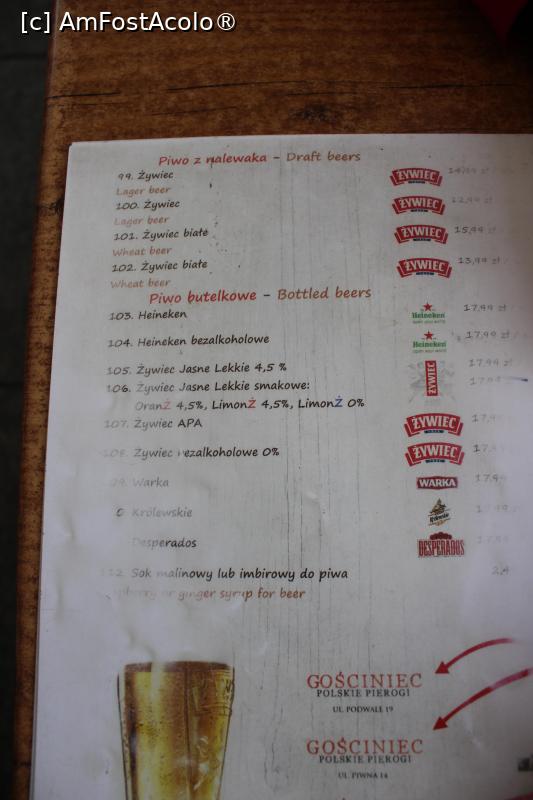 [c] AmFostAcolo®
Piwo z nalewaka - Draft beers
99. Żywiec ŻYWIEC
Lager beer
100. Żywiec ŻYWIEC 12,99 zł
Lager beer
101. Żywiec białe ŻYWIEC 15,99
Wheat beer
102. Żywiec białe ŻYWIEC 13,99 zł
Wheat beer
Piwo butelkowe - Bottled beers
103. Heineken Heineken 17,99 zł
104. Heineken bezalkoholowe Heineken 17,99 zł
105. Żywiec Jasne Lekkie 4,5 % ŻYWIEC 17,99 zł
106. Żywiec Jasne Lekkie smakowe: 17,99
OranŻ 4,5%, LimonŻ 4,5%, LimonŻ 0%
107. Żywiec APA ŻYWIEC 17,9
108. Żywiec bezalkoholowe 0% ŻYWIEC 17,9
Warka WARKA 17,99
Królewskie
Desperados DESPERADOS
Sok malinowy lub imbirowy do piwa 2,4
or ginger syrup for beer
GOŚCINIEC
POLSKIE PIEROGI
UL. PODWALE 19
GOŚCINIEC
POLSKIE PIEROGI
UL. PIWNA 14